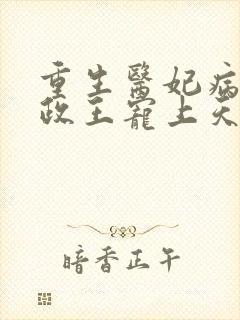 重生醫妃病
政王寵上天
暗香正午